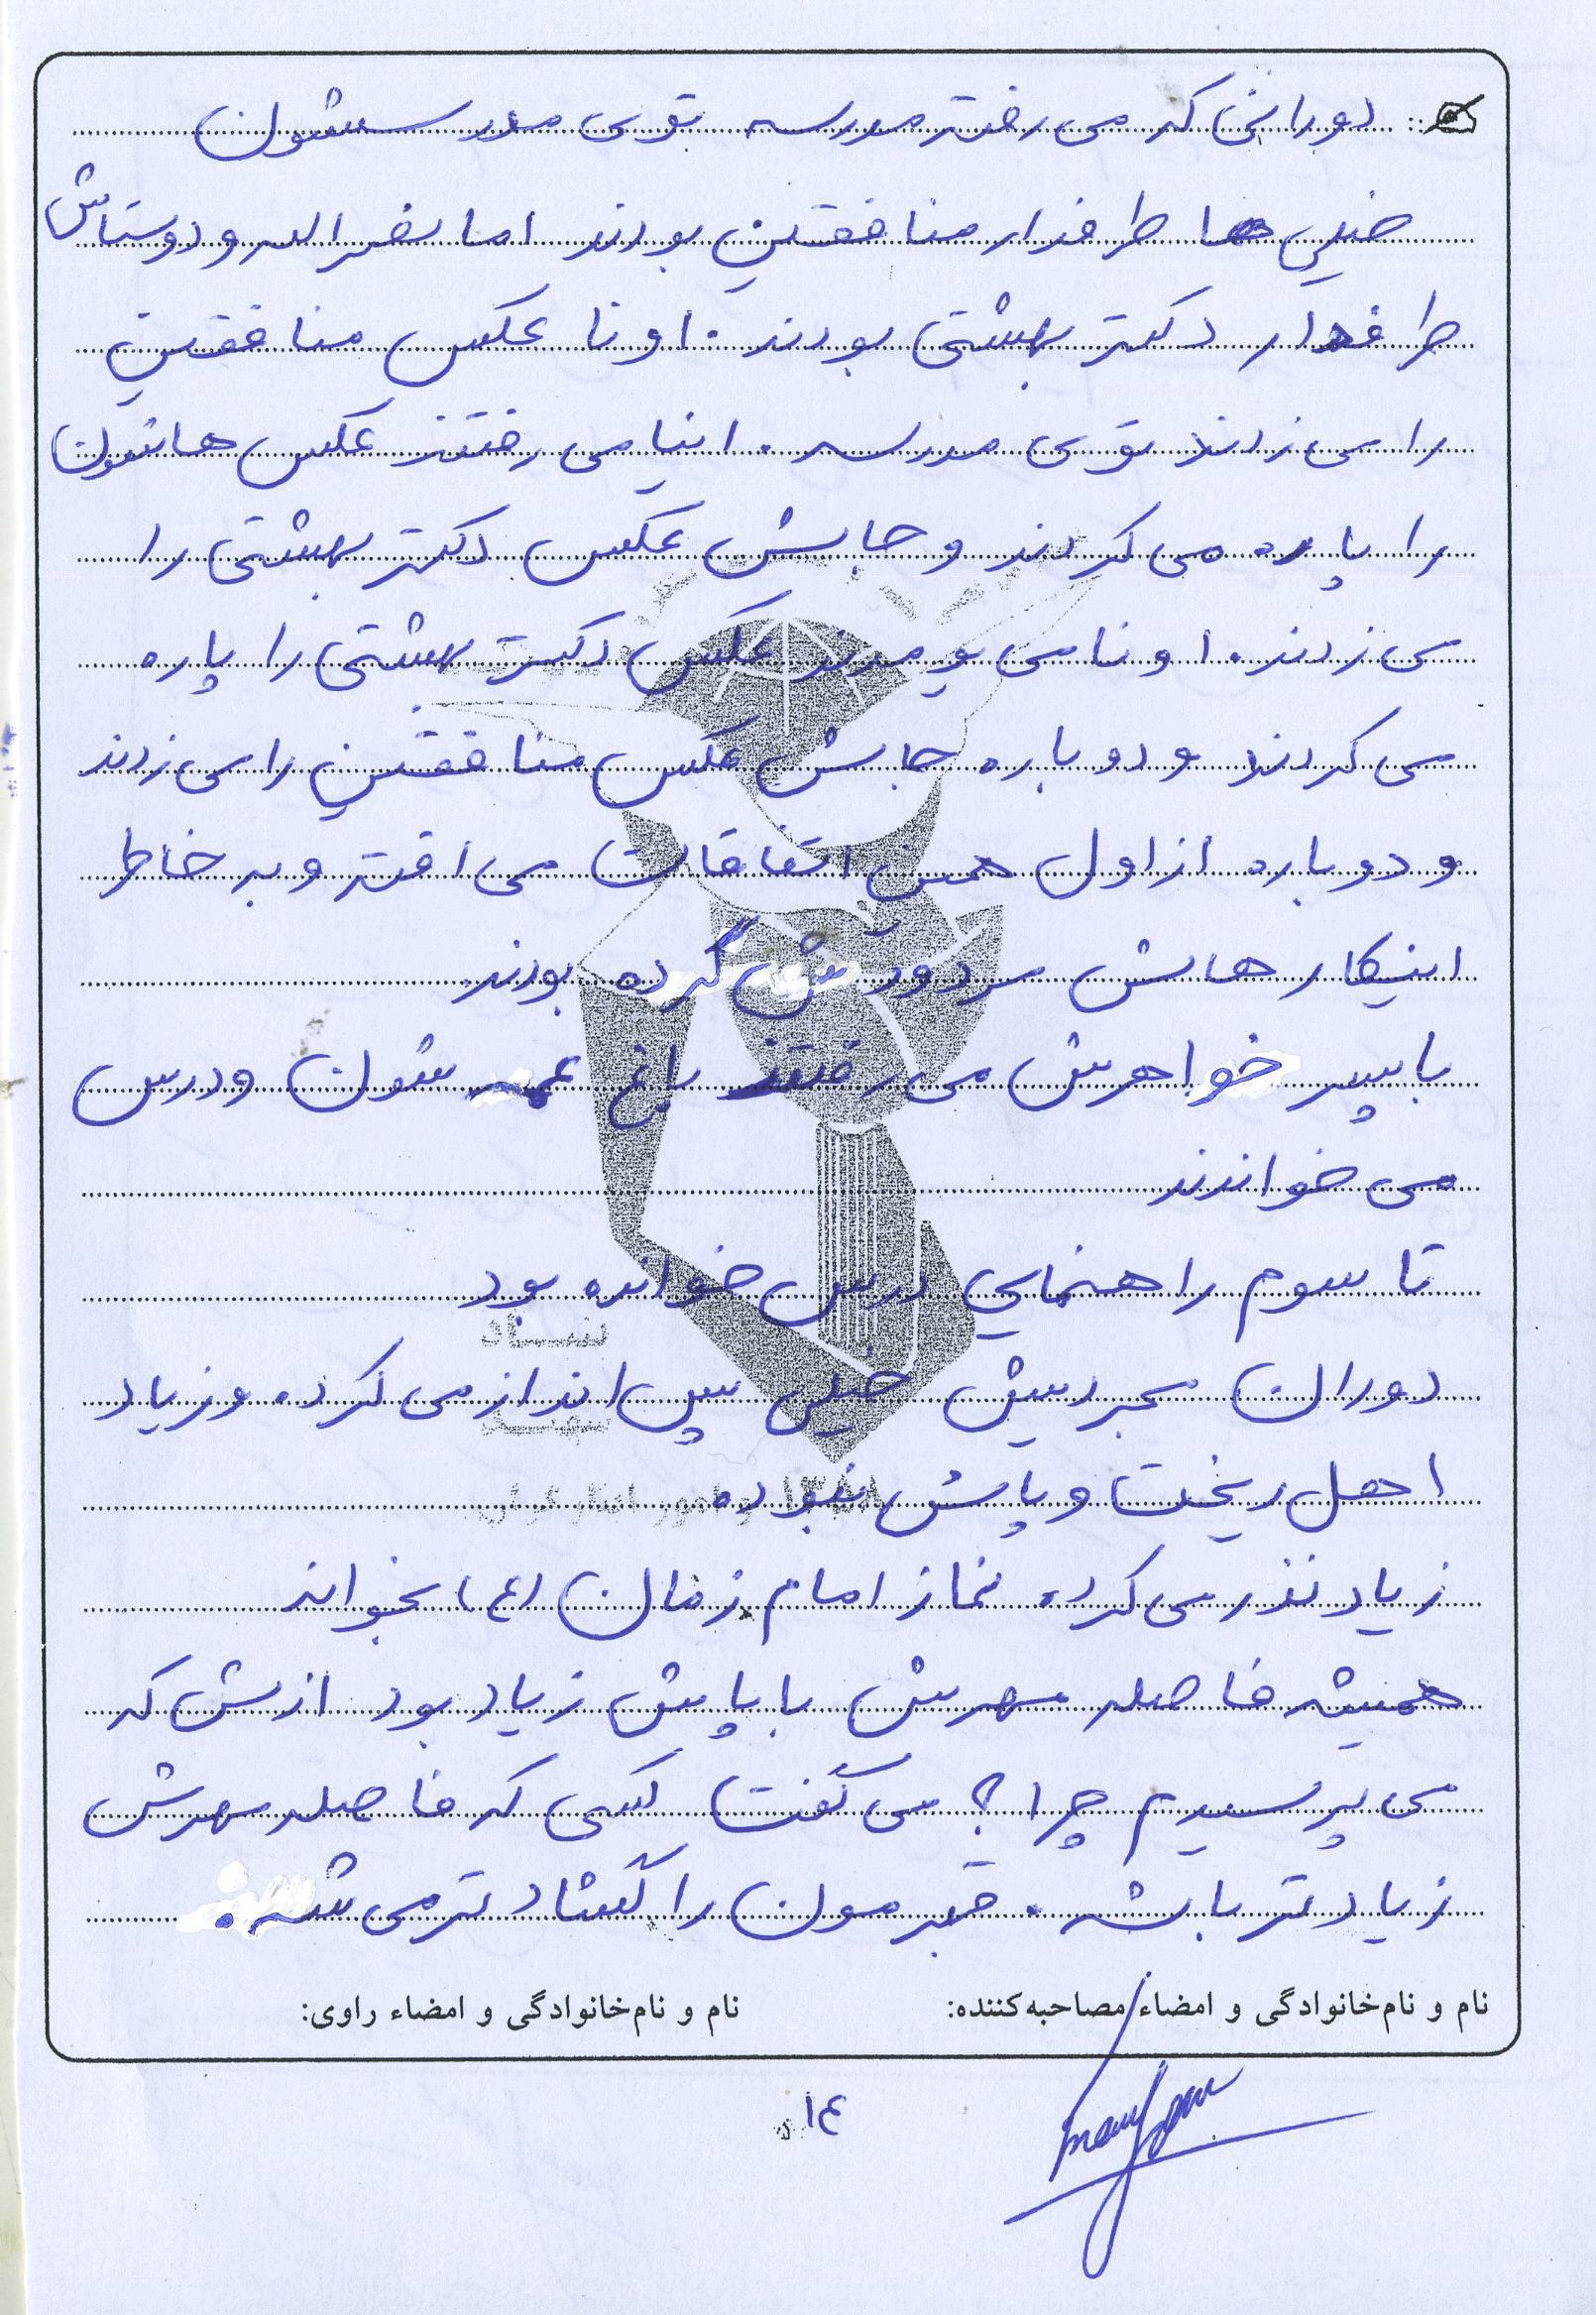 دورانی که می رفته مدرسه توی مدرسشون
خیلی ها طرفدار منافقین بودند اما نصراله و دوستاش
طرفدار دکتر بهشتی بودند. اونا عکس منافقین
را می زدند توی مدرسه. اینا می رفتند عکس هاشون
را پاره می کردند و جاش عکس دکتر بهشتی را
می زدند. اونا می یومدند عکس دکتر بهشتی را پاره
می کردند و دوباره جاش عکس منافقین را می زدند
و دوباره از اول همین اتفاقات می افته و به خاطر
اینکارهاش مردودش کرده بودند
با پسر خواهرش می رفتند باغ عمه شون و درس
می خواندند
تا سوم راهنمایی درس خوانده بود
دوران مجردیش خیلی پس انداز می کرده و زیاد
اهل ریخت و پاش نبوده
زیاد نذر می کرده نماز امام زمان (ع) بخواند
همیشه فاصله مهرش با پاش زیاد بود ازش که
می پرسیدم چرا؟ می گفت کسی که فاصله مهرش
زیادتر باشه. قبرمون را گشادتر می شه.
نام و نام‌خانوادگی و امضاء مصاحبه‌کننده:
نام و نام‌خانوادگی و امضاء راوی:
١٤